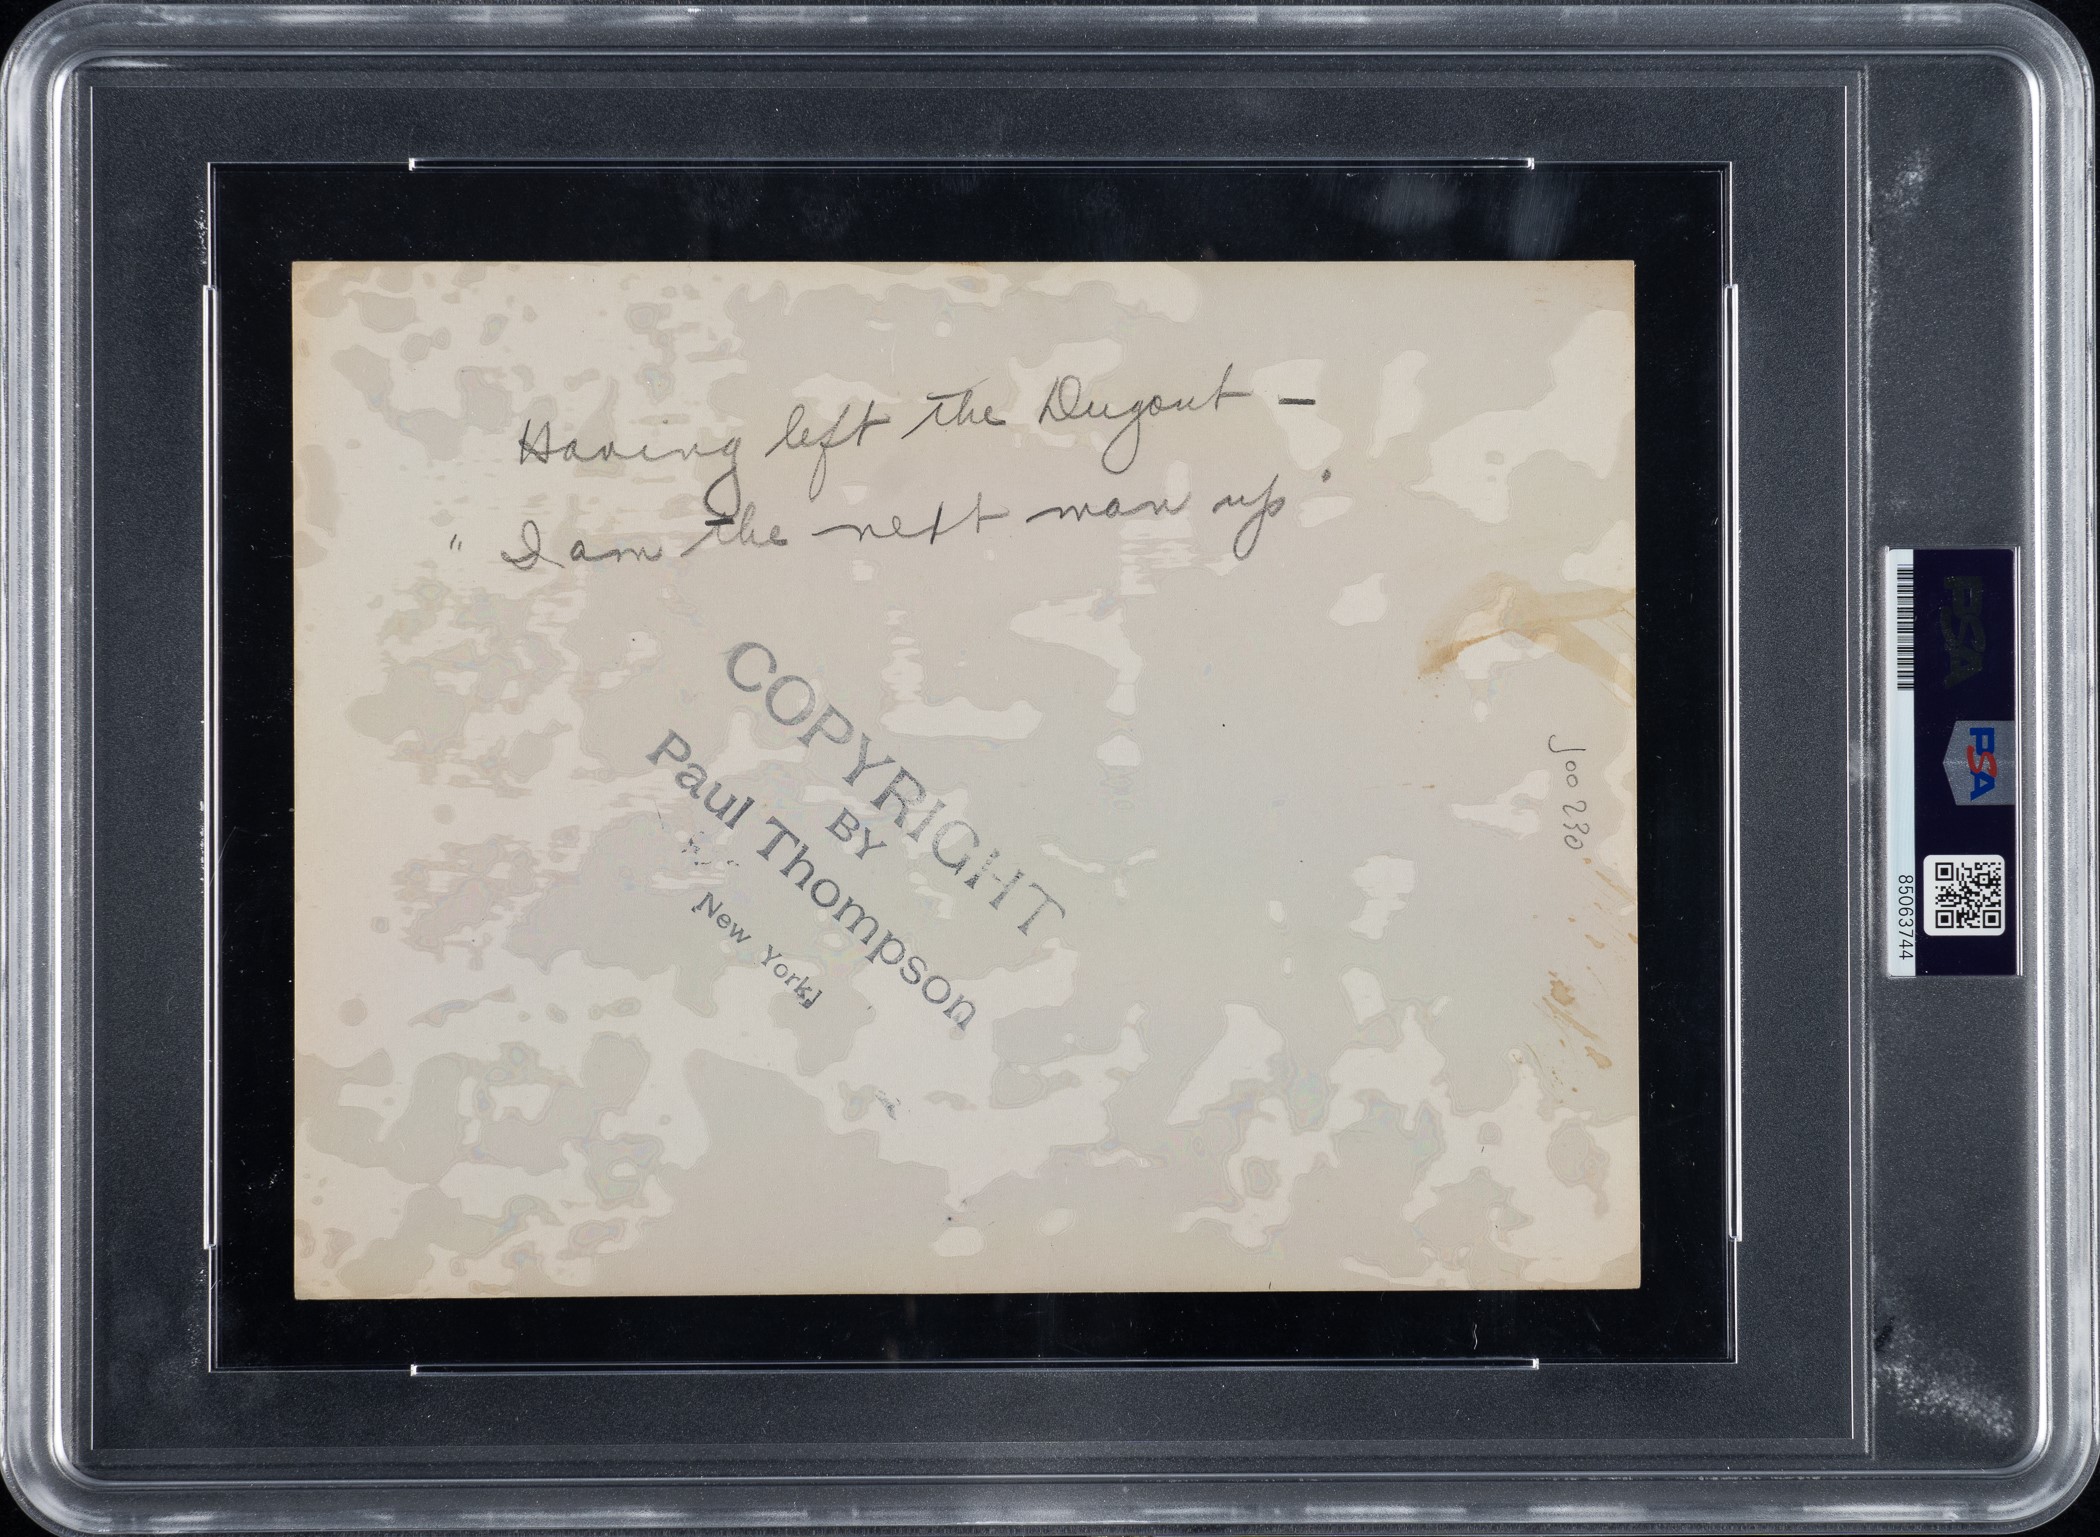 Having left the Dugout —
" I am the next man up"
COPYRIGHT
BY
Paul Thompson
New York
J00230
PSA
PSA
85063744